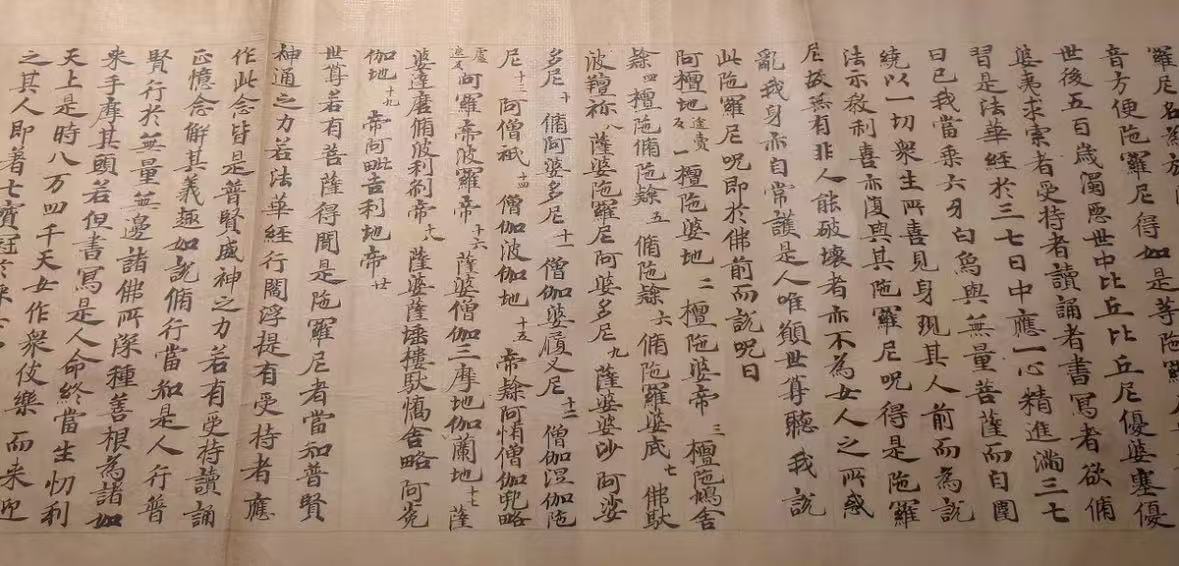 羅尼名為旋陁羅尼
音方便陁羅尼得如是等陁羅尼
世後五百歲濁惡世中比丘比丘尼優婆塞優
婆夷求索者受持者讀誦者書寫者欲脩
習是法華經於三七日中應一心精進滿三七
日已我當乘六牙白為與無量菩薩而自圍
繞以一切衆生所喜見身現其人前而為說
法示教利喜亦復與其陁羅尼呪得是陁羅
尼故無有非人能破壞者亦不為女人之所惑
亂我身亦自常護是人唯願世尊聽我說
此陁羅尼呪即於佛前而說呪曰
阿檀地途賣反一檀陁婆地二檀陁婆帝三檀陁鳩舍
隸四檀陁脩陁隸五脩陁隸六脩陁羅婆底七佛馱
波羶祢八薩婆陁羅尼阿婆多尼九薩婆婆沙阿婆
多尼十脩阿婆多尼十一僧伽婆履叉尼十二僧伽涅伽陁
尼十三阿僧祇十四僧伽波伽地十五帝隸阿惰僧伽兜略
盧遮反阿羅帝波羅帝十六薩婆僧伽三摩地伽蘭地十七薩
婆達磨脩波利刹帝十八薩婆薩埵樓馱憍舍略阿㝹
伽地十九帝阿毗吉利地帝廿
世尊若有菩薩得聞是陁羅尼者當知普賢
神通之力若法華經行閻浮提有受持者應
作此念皆是普賢威神之力若有受持讀誦
正憶念解其義趣如說脩行當知是人行普
賢行於無量無邊諸佛所深種善根為諸如
來手摩其頭若但書寫是人命終當生忉利
天上是時八万四千天女作衆伎樂而来迎
之其人即著七寶冠於婇